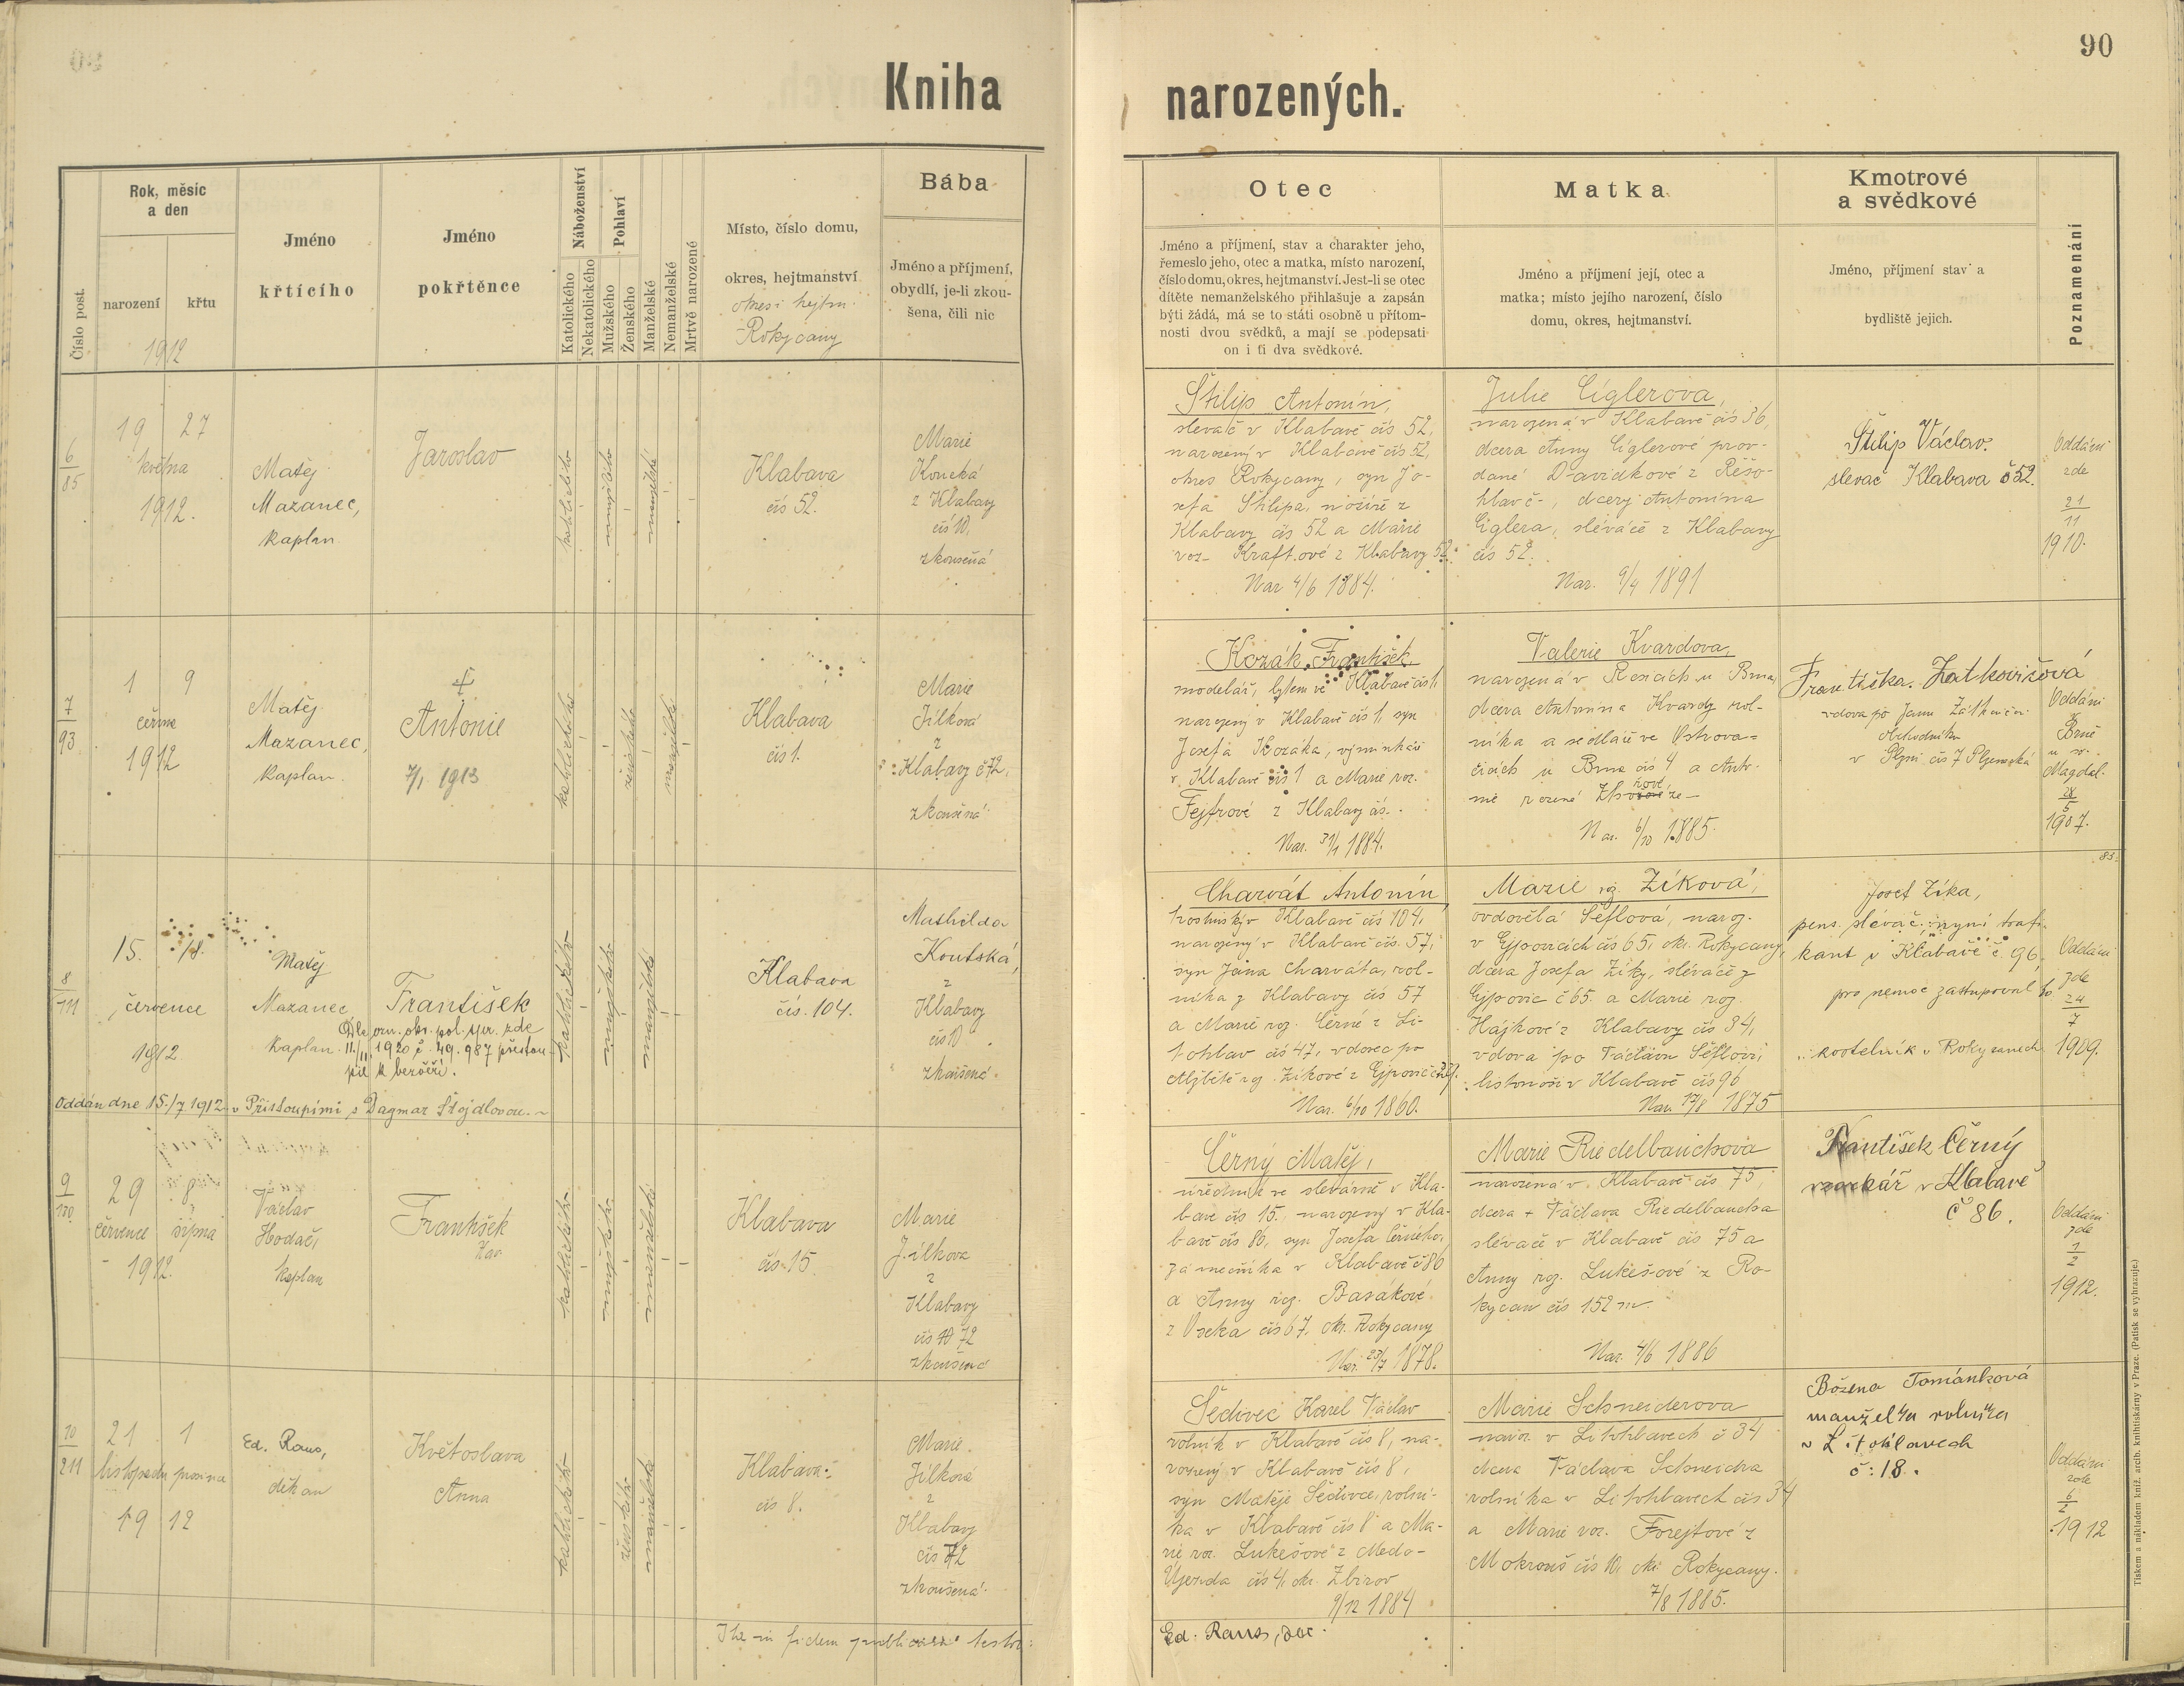 90
Kniha narozených.
Číslo post.
Rok, měsíc
a den
narození
křtu
1912
Jméno
křtícího
Jméno
pokřtěnce
Náboženství
Katolického
Nekatolického
Pohlaví
Mužského
Ženského
Manželské
Nemanželské
Mrtvě narozené
Místo, číslo domu,
okres, hejtmanství
okres i hejtm.
Rokycany
Bába
Jméno a příjmení,
obydlí, je-li zkou-
šena, čili nic
Otec
Jméno a příjmení, stav a charakter jeho,
řemeslo jeho, otec a matka, místo narození,
číslo domu, okres, hejtmanství. Jest-li se otec
dítěte nemanželského přihlašuje a zapsán
býti žádá, má se to státi osobně u přítom-
nosti dvou svědků, a mají se podepsati
on i ti dva svědkové.
Matka
Jméno a příjmení její, otec a
matka; místo jejího narození, číslo
domu, okres, hejtmanství.
Kmotrové
a svědkové
Jméno, příjmení stav a
bydliště jejich.
Poznamenání
6
85
19 27
května
1912.
Matěj
Mazanec,
kaplan
Jaroslav
katolického
mužského
manželské
Klabava
čís 52.
Marie
z Klabavy
čís 10,
zkoušená
Štilip Antonín,
slevač v Klabavě čís 52,
narozený v Klabavě čís 52,
okres Rokycany, syn Jo-
sefa Štilipa, nožíře z
Klabavy čís 52 a Marie
roz. Kraftové z Klabavy 52.
Nar 4/6 1884.
Julie Ciglerova,
narozená v Klabavě čís 36,
dcera Anny Ciglerové prov-
dané Davidkové z Rešo-
hlav č -, dcery Antonína
Ciglera, slévače z Klabavy
čís 52.
Nar. 9/4 1891
Štilip Václav.
slevač Klabava č 52.
Oddáni
zde
21
11
1910.
7
93
1 9
června
1912
Matěj
Mazanec,
kaplan.
Antonie
7/1 1913
katolického
ženského
manželské
Klabava
čís 1.
Marie
Jílková
z
Klabavy č 72,
zkoušená
Kozák František,
modelář, bytem ve Klabavě čís 1,
narozený v Klabavě čís 1, syn
Josefa Kozáka, výminkáře
v Klabavě čís 1 a Marie roz.
Fejfrové z Klabavy čís.
Nar. 31/1 1884.
Valerie Kvardova,
narozená v Rosicích u Brna,
dcera Antonína Kvardy rol-
níka a sedláře ve Ostrova-
čicích u Brna čís 4 a Anto-
nie rozené
Nar. 6/10 1885.
Františka Zatkovičová
vdova po Janu Zátkovičovi
obchodníku
v Plzni čís 7 Plzenecká
Oddáni
v
Brně
u sv.
Magdal.
28
5
1907.
8
111
15. 18.
července
1912
Matěj
Mazanec
kaplan
František
Dle ozn. okr. pol. spr. zde
11./11. 1920 č. 49.987 přestou-
pil k bezvěří.
Oddán dne 15./7 1912 v Přistoupimi s Dagmar Štajdlovou.
katolického
mužského
manželské
Klabava
čís. 104.
Mathilda
Koutská,
z
Klabavy
čís 10
zkoušená.
Charvát Antonín
hostinský v Klabavě čís 104,
narozený v Klabavě čís. 57,
syn Jana Charváta, rol-
níka z Klabavy čís 57
a Marie roz. Černé z Li-
tohlav čís 47, vdovec po
Alžbětě roz. Zíkové z Ejpovic
Nar. 6/10 1860.
Marie roz. Zíková,
ovdovělá Šéflová, naroz.
v Ejpovicích čís 65, okr. Rokycany,
dcera Josefa Zíky, slévače z
Ejpovic č 65. a Marie roz.
Hájkové z Klabavy čís 34,
vdova po Václavu Šéflovi,
listonoši v Klabavě čís 96
Nar. 17/8 1875
Josef Zíka,
pens. slévač, nyní trafi-
kant v Klabavě č. 96,
pro nemoc zastupoval ho
kostelník v Rokycanech
Oddáni
zde
24
7
1909.
9
130
29 8
července srpna
1912.
Václav
Hodač,
kaplan
František
katolického
mužského
manželské
Klabava
čís 15.
Marie
Jílkova
z
Klabavy
čís 72
zkoušená
Černý Matěj,
úředník ve slévárně v Kla-
bavě čís 15, narozený v Kla-
bavě čís 86, syn Josefa Černého,
zámečníka v Klabavě č 86
a Anny roz. Basákové
z Oseka čís 67, okr. Rokycany
Nar. 23/7 1878.
Marie Riedelbauchova
narozená v Klabavě čís 75,
dcera + Václava Riedelbaucha
slévače v Klabavě čís 75 a
Anny roz. Lukešové z Ro-
kycan čís 152 m.
Nar. 4/6 1886
František Černý
v Klabavě
č 86.
Oddáni
zde
1
2
1912.
10
211
21 1
listopadu prosince
1912
Ed. Raus,
děkan
Květoslava
Anna
katolického
ženského
manželské
Klabava
čís 8.
Marie
Jílková
z
Klabavy
čís 72
zkoušená
Šedivec Karel Václav
rolník v Klabavě čís 8, na-
rozený v Klabavě čís 8,
syn Matěje Šedivce, rolní-
ka v Klabavě čís 8 a Ma-
rie roz. Lukešové z Medo-
Újezda čís 4, okr. Zbirov
9/12 1884
Marie Schneiderova
naroz. v Litohlavech č 34
dcera Václava Schneidra
rolníka v Litohlavech čís 34
a Marie roz. Forejtové z
Mokrouš čís 10, okr. Rokycany.
7/8 1885.
Božena Tománková
manželka rolníka
v Litohlavech
č: 18.
Oddáni
zde
6
2
1912
Ita in fidem publicam testor:
Ed. Raus, děk.
Tiskem a nákladem kníž. arcib. knihtiskárny v Praze. (Patisk se vyhrazuje.)